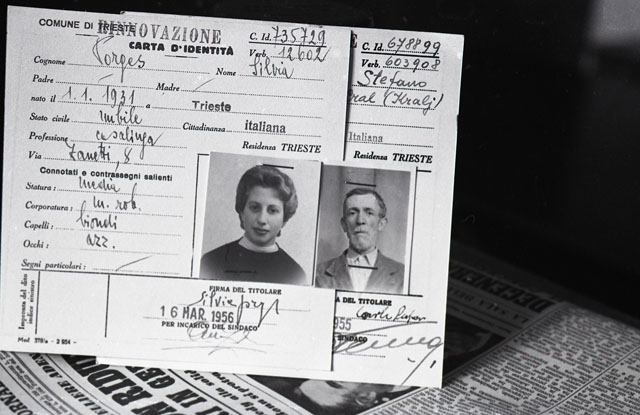 COMUNE DI TRIESTE
RINNOVAZIONE
CARTA D'IDENTITÀ
C. Id. 735729
Verb. 12602
Cognome Porges
Nome Silvia
Padre Madre
nato il 1.1.1931 a Trieste
Stato civile nubile
Cittadinanza italiana
Professione casalinga
Residenza TRIESTE
Via Zanetti, 8
Connotati e contrassegni salienti
Statura: media
Corporatura: m. rob.
Capelli: biondi
Occhi: azz.
Segni particolari:
Impronta del dito indice sinistro
FIRMA DEL TITOLARE
16 MAR 1956
PER INCARICO DEL SINDACO
E
C. Id. 678899
Verb. 603908
Stefano
ral (Kralj)
Italiana
Residenza TRIESTE
A DEL TITOLARE
955
SINDACO